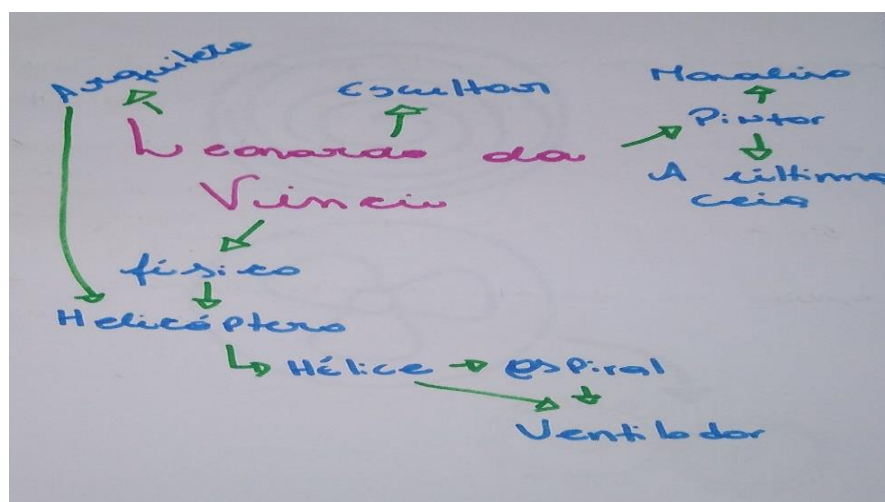 Arquiteto
Escultor
Monaliza
Pintor
Leonardo da
Vinci
A última
ceia
físico
Helicóptero
Hélice
espiral
Ventilador